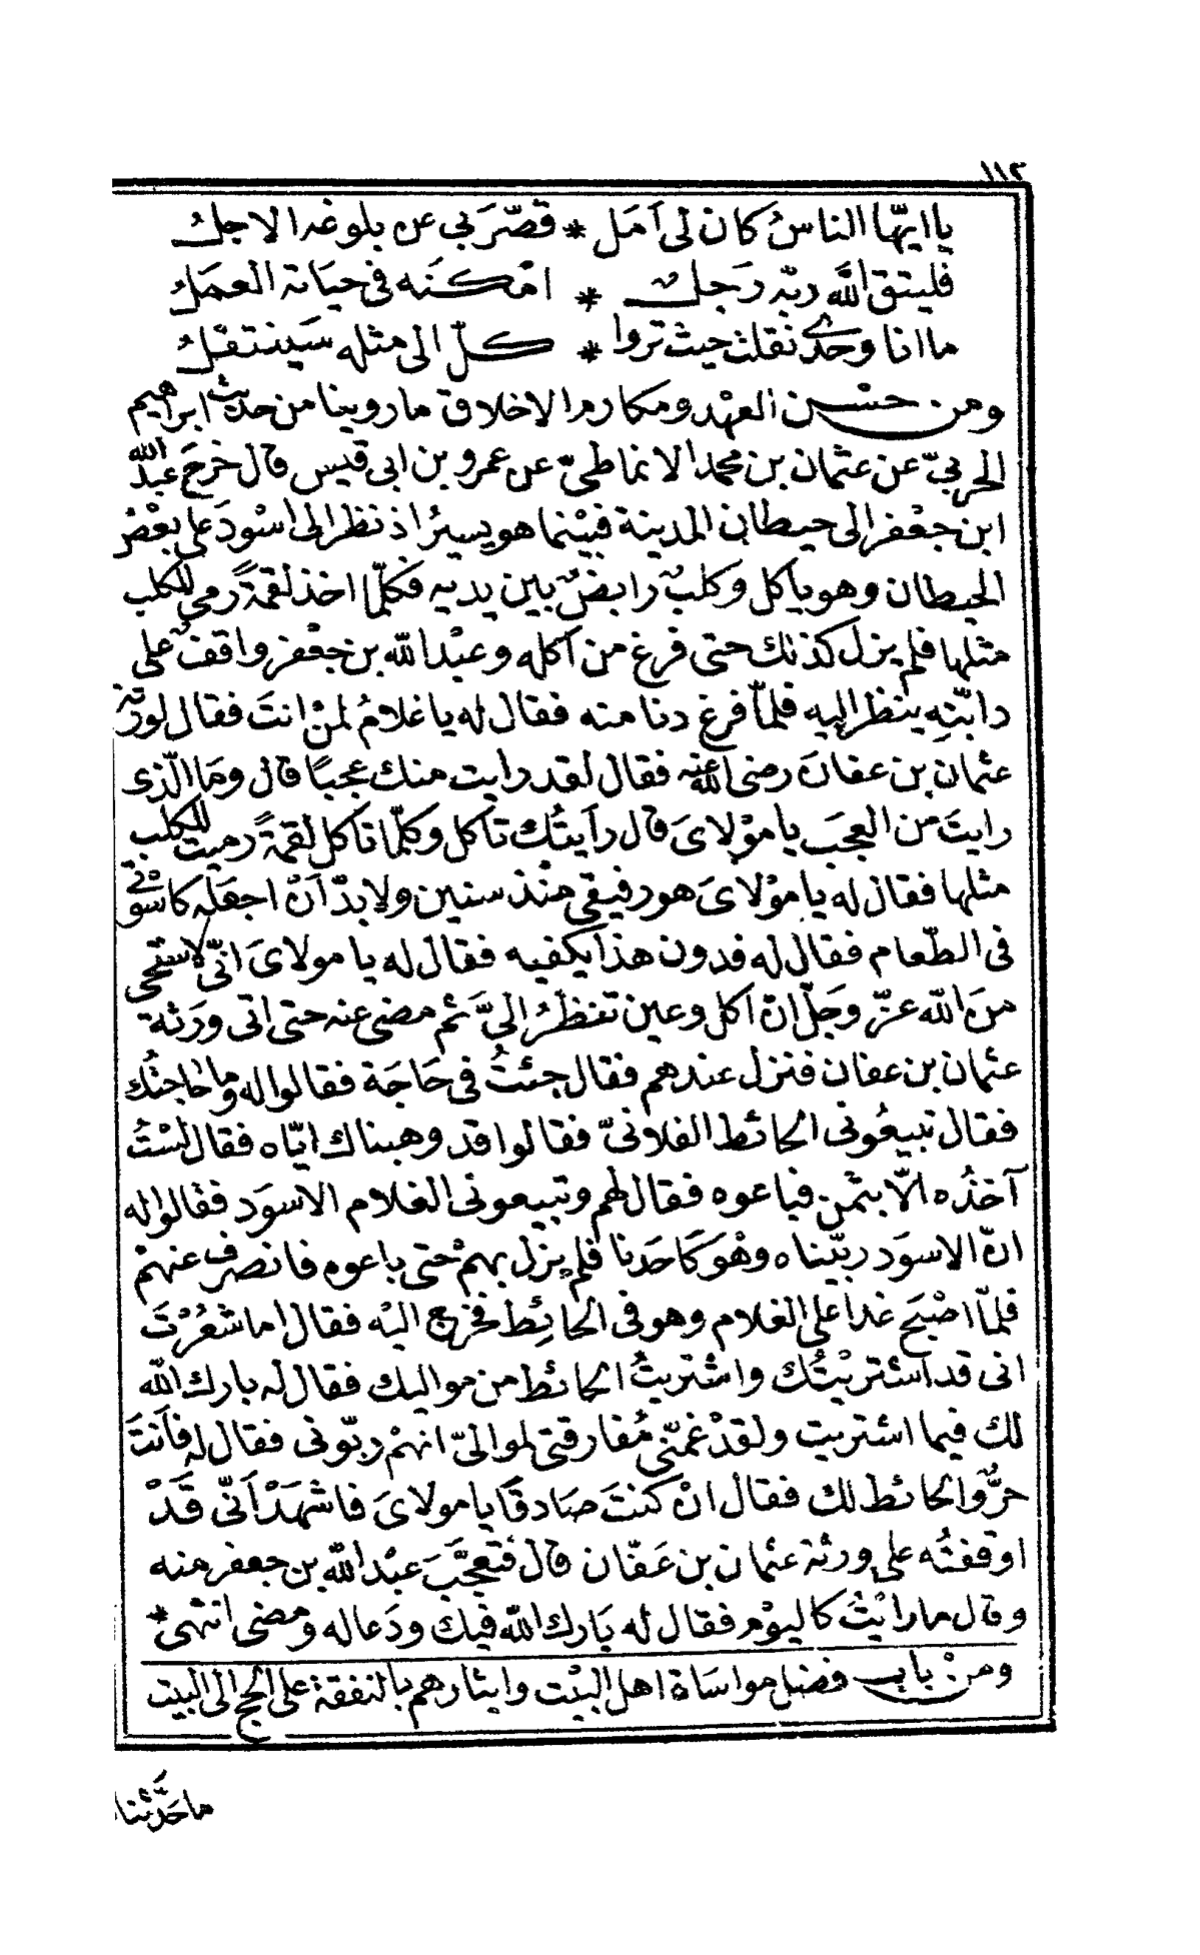 ١١٢
يا ايّها الناسُ كان لى اَمَل * قصّرَ بى عن بلوغه الاجلُ
فليتق اللّٰهَ ربّه رَجلٌ * امْكَنَه فى حيَاته العمَلُ
ما انا وحْدى نقلت حيث تروا * كلّ الى مثله سَينتقلُ
ومن حسْن العهْد ومكارم الاخلاق ما روينا من حديث ابراهيم
الحربىّ عن عثمان بن محمد الانماطىّ عن عمرو بن ابى قيس قال خرجَ عبد الله
ابن جعْفر الى حيطان المدينة فبيْنما هو يسيرُ اذ نظر الى اسْودَ على بعْض
الحيطان وهو يأكل وكلبٌ رابضٌ بين يديه فكلّما اخذ لقمةً رمى للكلب
مثلها فلم يزل كذلك حتى فرغ من اَكله وعبْد الله بن جعْفر واقفٌ على
دابّتِه ينظر اليه فلمّا فرغ دنا منه فقال له يا غلامُ لمنْ انتَ فقال لورثة
عثمان بن عفانَ رضى الله عنه فقال لقد رايت منك عجبًا قال ومَا الّذى
رايتَ من العجَب يا موْلاىَ قال رأيتُك تأكل وكلّما تأكل لقمةً رميت للكلب
مثلها فقال له يا موْلاىَ هو رفيقى منْذ سنين ولا بدّ اَنْ اجعَله كاسْوتى
فى الطّعام فقال له فدون هذا يكفيه فقال له يا مولاىَ انّى لاستحى
منَ الله عزّ وجَلّ انْ آكل وعين تنظرُ الىَّ ثم مضى عنه حتى اتى ورَثة
عثمان بن عفان فنزل عندهم فقال جئتُ فى حَاجَة فقالوا له وما حاجتُك
فقال تبيعُونى الحائط الفلانىّ فقالوا قد وهبناك ايّاه فقال لسْتُ
آخذُه الّا بثمن فباعوه فقال لهم وتبيعونى الغلام الاسوَد فقالوا له
انّ الاسوَد ربّيناه وهْوَ كَاحَدنا فلم يزل بهمْ حتى باعوه فانصرف عنهمْ
فلمّا اصْبَح غدا على الغلام وهو فى الحائِط فخرج اليْه فقال اما شعُرْتَ
انى قد اشتريْتُك واشتريتُ الحائط من مواليك فقال له بارك الله
لك فيما اشتريت ولقدْ غمّنى مُفارقتى لموالىّ انهمْ ربّونى فقال له فاَنتَ
حرٌّ والحائط لك فقال انْ كنتَ صَادقًا يا مولاىَ فاشهَدْ اَنّى قَدْ
اوقفتُه على ورثة عثمان بن عَفّان قال فتعجَّبَ عبْد الله بن جعفر منه
وقال ما رايْتُ كاليوْم فقال له بَارك الله فيك ودَعا له ومضى انتهى *
ومنْ باب فضل مواسَاة اهل البيْت وايثارهم بالنفقة على الحج الى البيت
ما حَدَّثنا